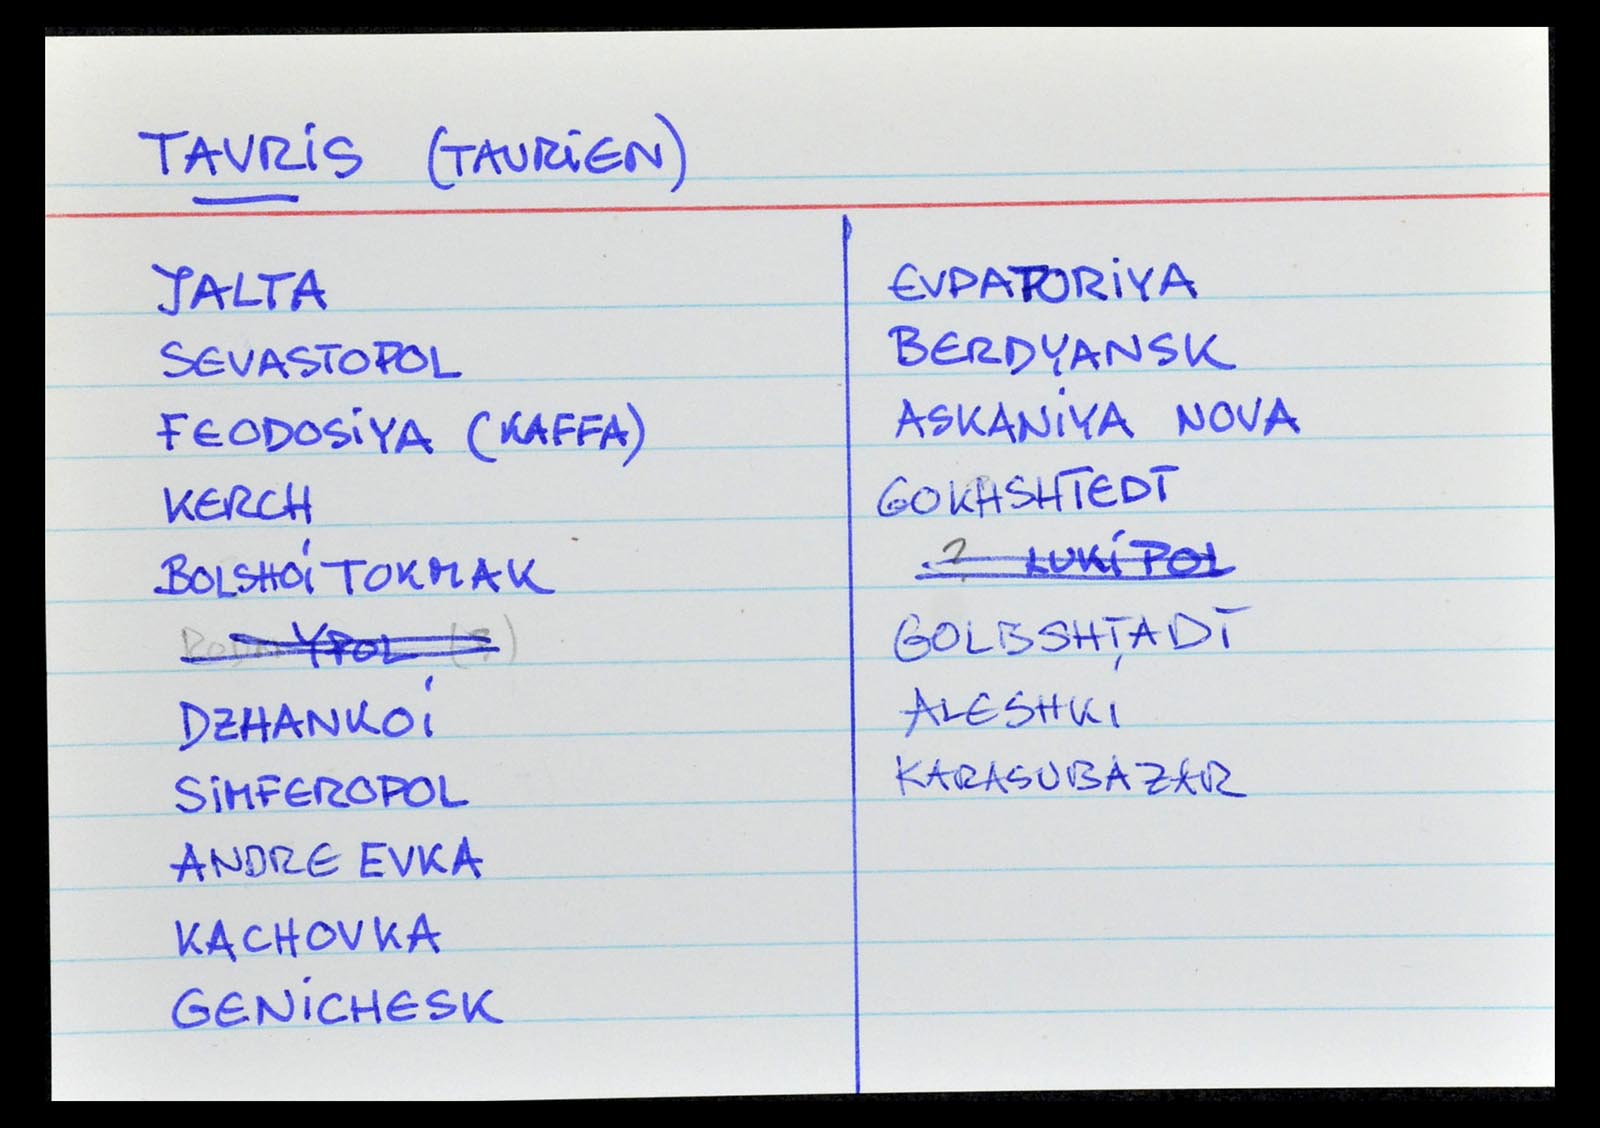 TAVRIS (TAURIEN)
JALTA
SEVASTOPOL
FEODOSIYA (KAFFA)
KERCH
BOLSHOI TOKMAK
YPOL (?)
DZHANKOI
SIMFEROPOL
ANDRE EVKA
KACHOVKA
GENICHESK
EVPATORIYA
BERDYANSK
ASKANIYA NOVA
GOKHSHTEDT
? LUKIPOL
GOLBSHTADT
ALESHKI
KARASUBAZAR